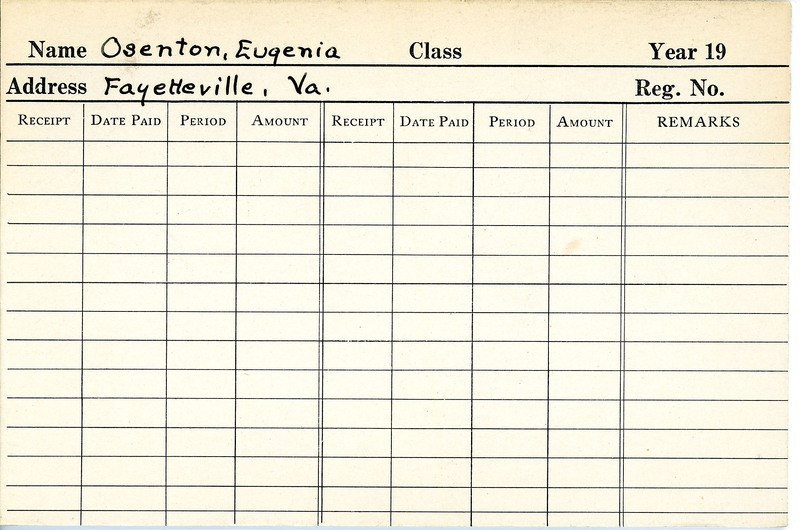 Name Osenton, Eugenia Class Year 19
Address Fayetteville, Va. Reg. No.
RECEIPT DATE PAID PERIOD AMOUNT RECEIPT DATE PAID PERIOD AMOUNT REMARKS